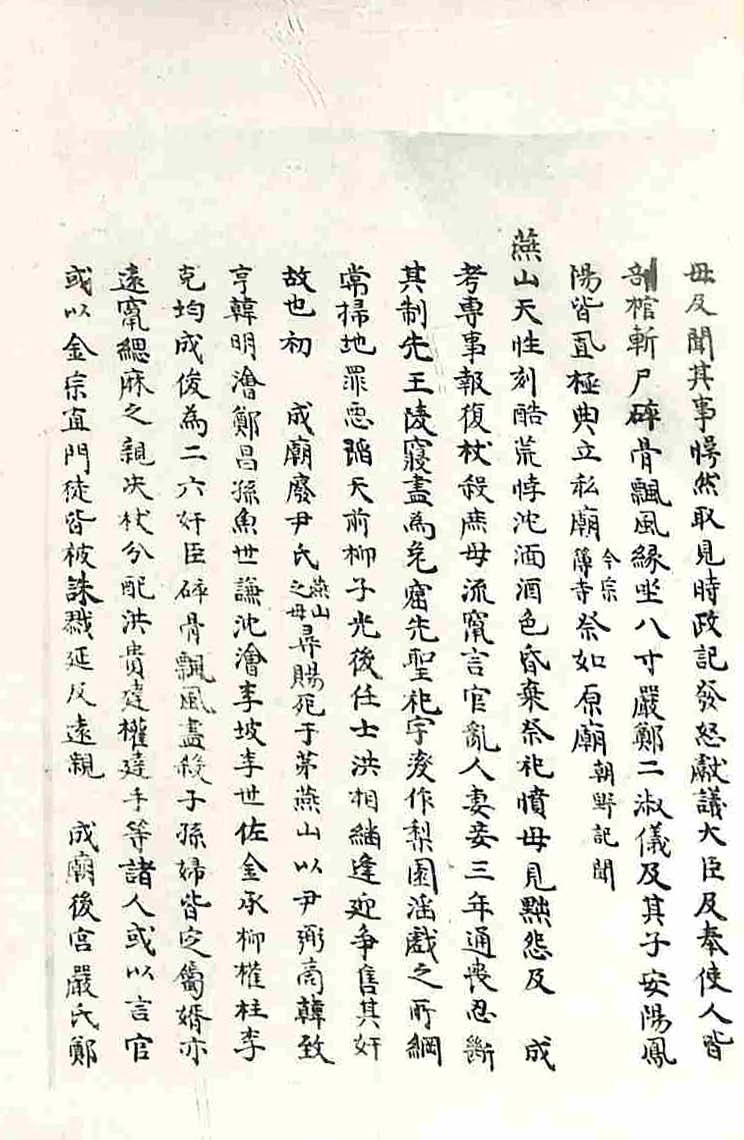 母及聞其事愕然取見時政記發怒獻議大臣及奉使人皆
剖棺斬尸碎骨飄風緣坐八寸嚴鄭二淑儀及其子安陽鳳
陽皆寘極典立私廟今宗簿寺祭如原廟朝野記聞
燕山天性刻酷荒悖沈湎酒色昏棄祭祀憤母見黜怨及　成
考專事報復杖殺庶母流竄言官亂人妻妾三年通喪忍斷
其制先王陵寢盡為兎窟先聖祀宇變作梨園淫戲之所綱
常掃地罪惡滔天前柳子光後任士洪相繼逢迎爭售其奸
故也初　成廟廢尹氏燕山之母尋賜死于茅燕山以尹弼商韓致
亨韓明澮鄭昌孫魚世謙沈澮李坡李世佐金承柳權柱李
克均成俊為二六奸臣碎骨飄風盡殺子孫婦皆定屬婿亦
遠竄緦麻之親决杖分配洪貴達權達手等諸人或以言官
或以金宗直門徒皆被誅戮延及遠親　成廟後宮嚴氏鄭